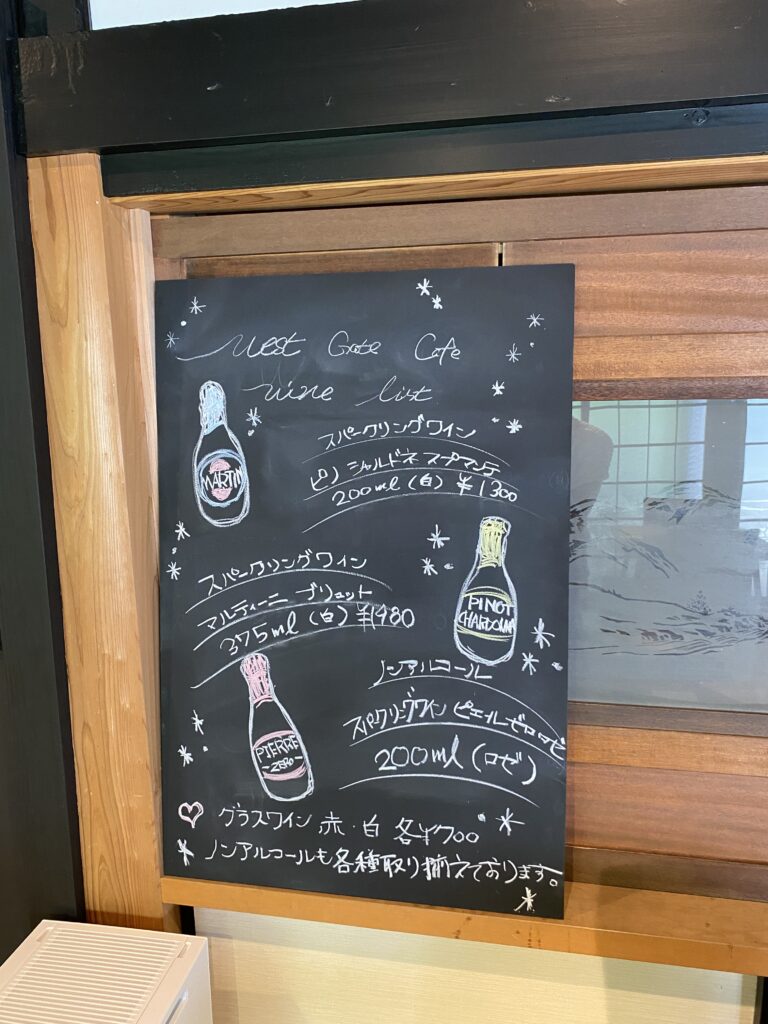 West Gate Cafe
wine list
MARTINI
スパークリングワイン
ピノ シャルドネ スプマンテ
200ml (白) ¥1300
スパークリングワイン
マルティーニ ブリュット
375ml (白) ¥1980
PINOT
CHARDONNAY
ノンアルコール
スパークリングワイン ピエールゼロロゼ
200ml (ロゼ)
PIERRE
-ZERO-
グラスワイン 赤・白 各¥700
ノンアルコールも各種取り揃えております。